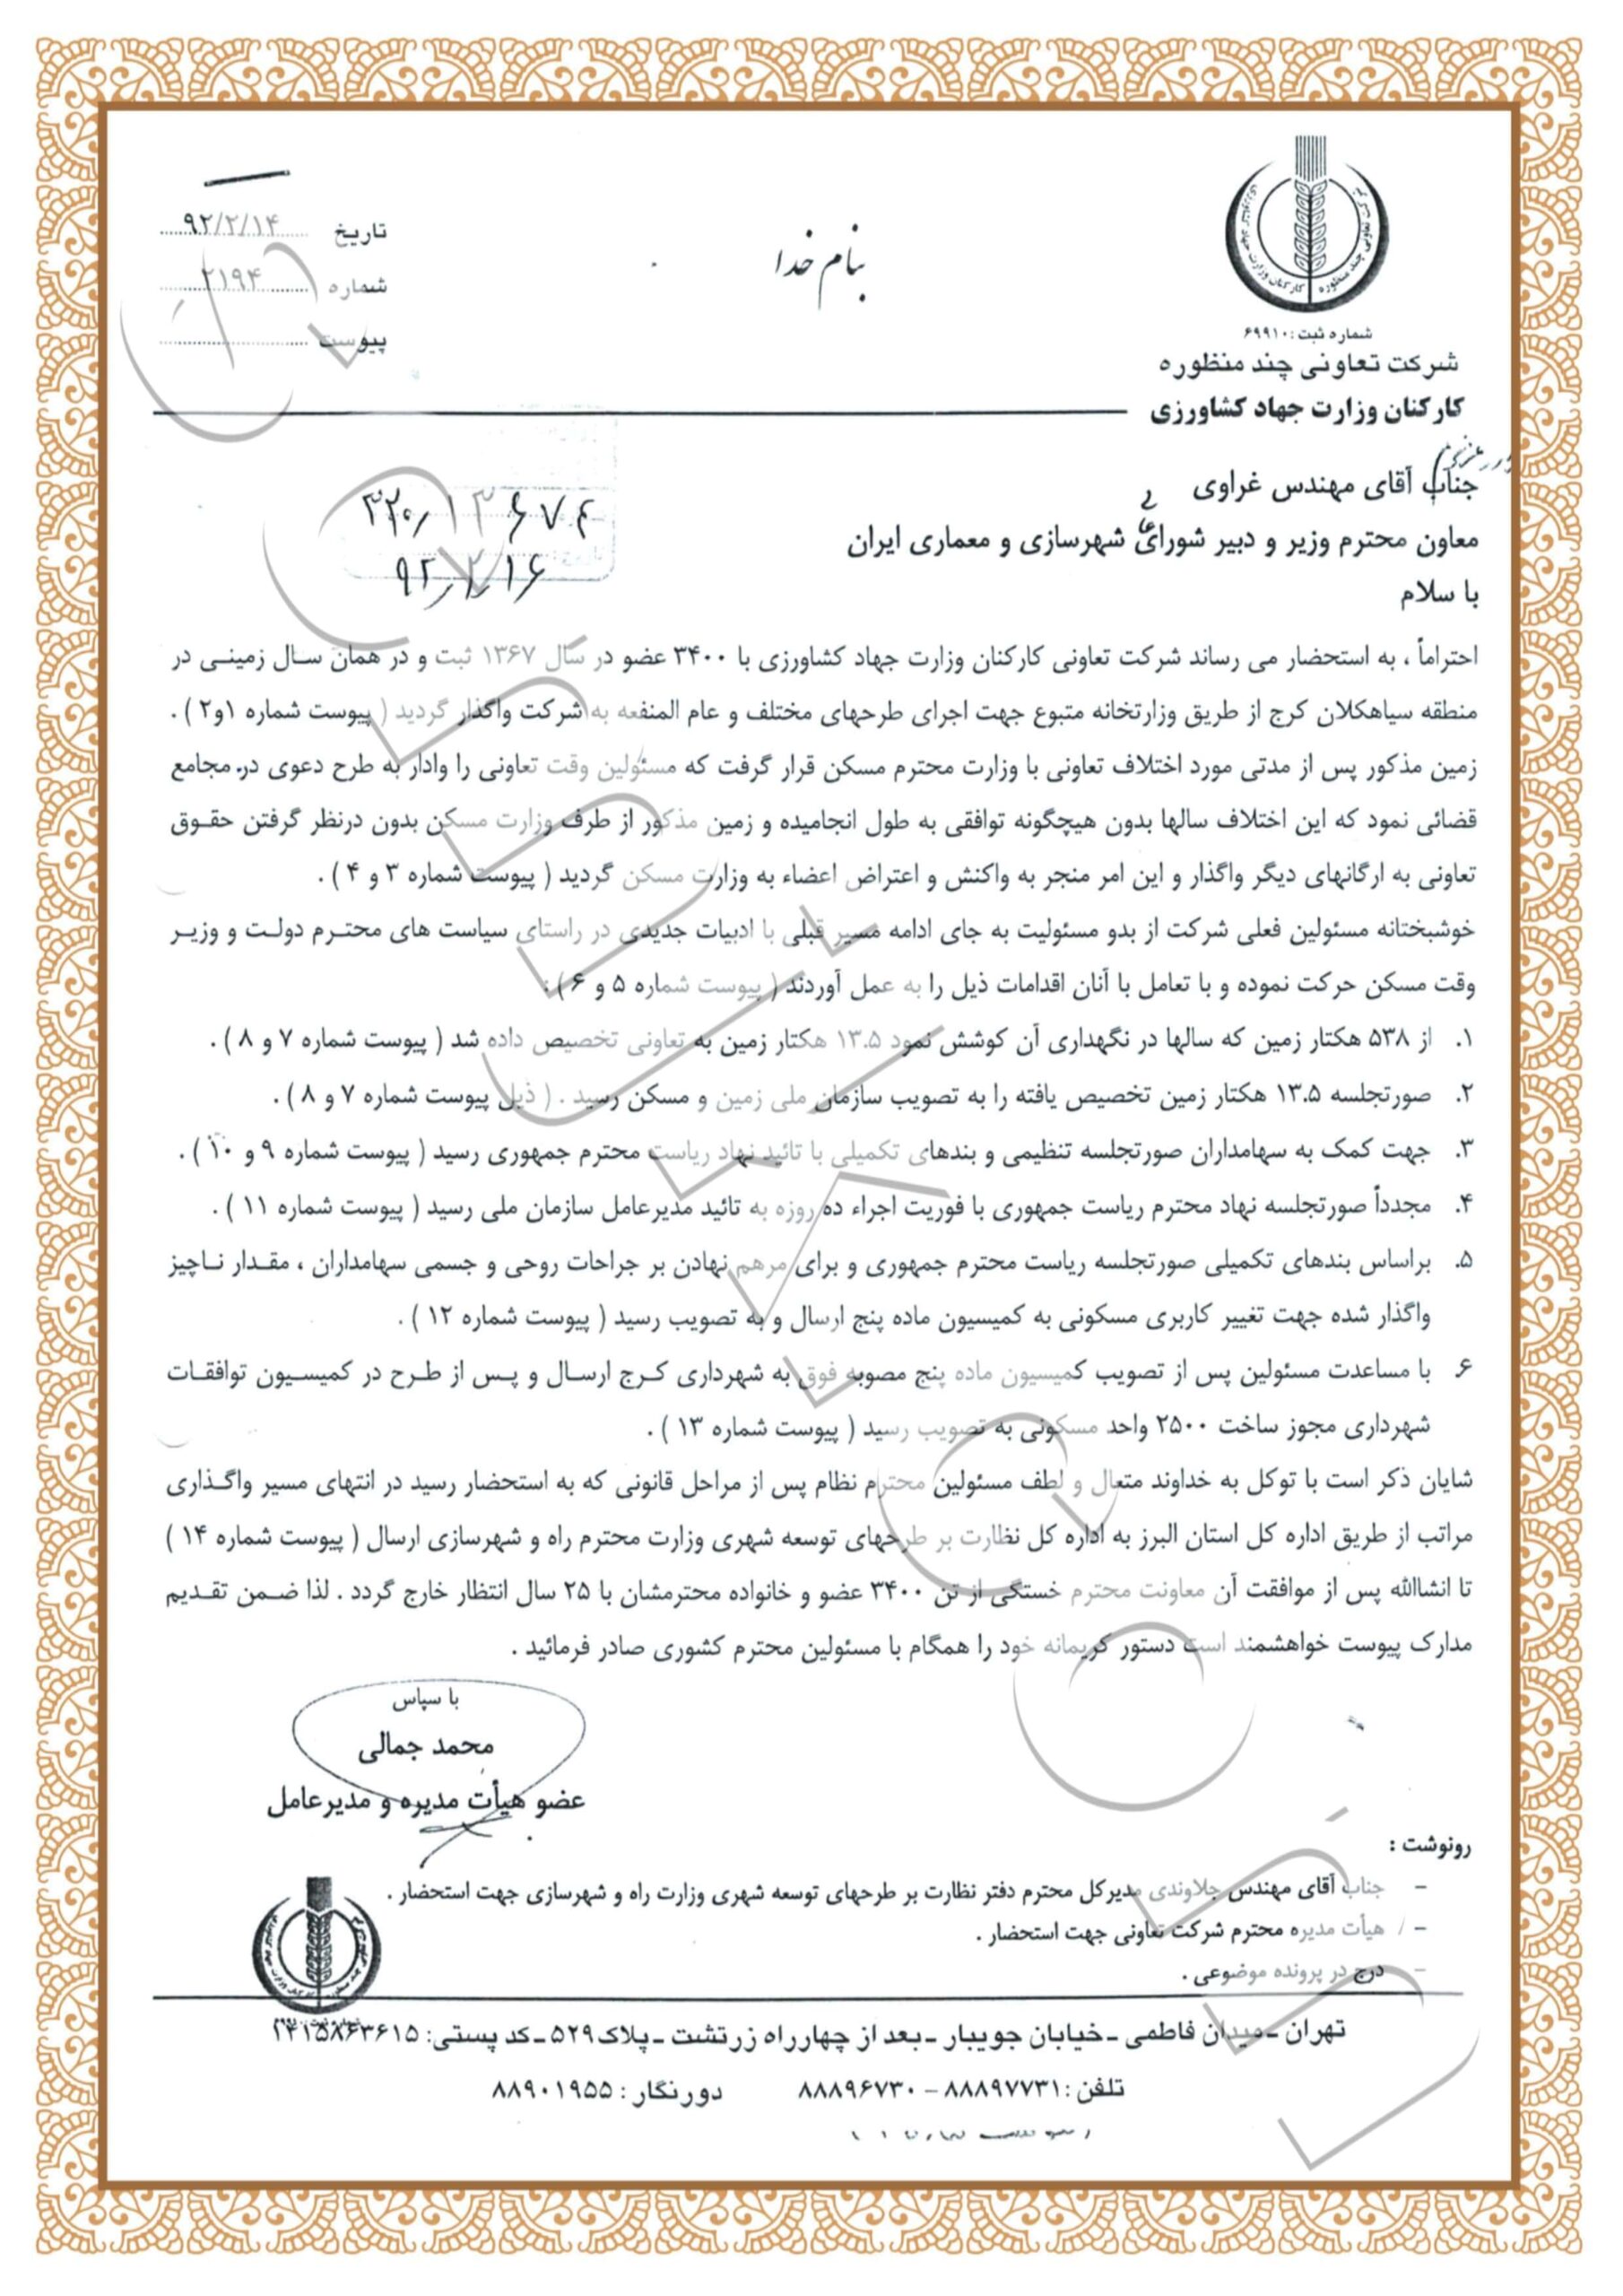 بنام خدا
تاریخ ۹۲/۲/۱۴
شماره ۲۱۹۴
پیوست
شماره ثبت: ۶۹۹۱۰
شرکت تعاونی چند منظوره
کارکنان وزارت جهاد کشاورزی
جناب آقای مهندس غراوی
معاون محترم وزیر و دبیر شورای شهرسازی و معماری ایران
با سلام
۹۲/۲/۱۶
احتراماً ، به استحضار می رساند شرکت تعاونی کارکنان وزارت جهاد کشاورزی با ۳۴۰۰ عضو در سال ۱۳۶۷ ثبت و در همان سال زمینی در
منطقه سیاهکلان کرج از طریق وزارتخانه متبوع جهت اجرای طرحهای مختلف و عام المنفعه به شرکت واگذار گردید ( پیوست شماره ۱و۲ ) .
زمین مذکور پس از مدتی مورد اختلاف تعاونی با وزارت محترم مسکن قرار گرفت که مسئولین وقت تعاونی را وادار به طرح دعوی در مجامع
قضائی نمود که این اختلاف سالها بدون هیچگونه توافقی به طول انجامیده و زمین مذکور از طرف وزارت مسکن بدون درنظر گرفتن حقوق
تعاونی به ارگانهای دیگر واگذار و این امر منجر به واکنش و اعتراض اعضاء به وزارت مسکن گردید ( پیوست شماره ۳ و ۴ ) .
خوشبختانه مسئولین فعلی شرکت از بدو مسئولیت به جای ادامه مسیر قبلی با ادبیات جدیدی در راستای سیاست های محترم دولت و وزیر
وقت مسکن حرکت نموده و با تعامل با آنان اقدامات ذیل را به عمل آوردند ( پیوست شماره ۵ و ۶ ) :
۱. از ۵۳۸ هکتار زمین که سالها در نگهداری آن کوشش نمود ۱۳.۵ هکتار زمین به تعاونی تخصیص داده شد ( پیوست شماره ۷ و ۸ ) .
۲. صورتجلسه ۱۳.۵ هکتار زمین تخصیص یافته را به تصویب سازمان ملی زمین و مسکن رسید . ( ذیل پیوست شماره ۷ و ۸ ) .
۳. جهت کمک به سهامداران صورتجلسه تنظیمی و بندهای تکمیلی با تائید نهاد ریاست محترم جمهوری رسید ( پیوست شماره ۹ و ۱۰ ) .
۴. مجدداً صورتجلسه نهاد محترم ریاست جمهوری با فوریت اجراء ده روزه به تائید مدیرعامل سازمان ملی رسید ( پیوست شماره ۱۱ ) .
۵. براساس بندهای تکمیلی صورتجلسه ریاست محترم جمهوری و برای مرهم نهادن بر جراحات روحی و جسمی سهامداران ، مقدار ناچیز
واگذار شده جهت تغییر کاربری مسکونی به کمیسیون ماده پنج ارسال و به تصویب رسید ( پیوست شماره ۱۲ ) .
۶. با مساعدت مسئولین پس از تصویب کمیسیون ماده پنج مصوبه فوق به شهرداری کرج ارسال و پس از طرح در کمیسیون توافقات
شهرداری مجوز ساخت ۲۵۰۰ واحد مسکونی به تصویب رسید ( پیوست شماره ۱۳ ) .
شایان ذکر است با توکل به خداوند متعال و لطف مسئولین محترم نظام پس از مراحل قانونی که به استحضار رسید در انتهای مسیر واگذاری
مراتب از طریق اداره کل استان البرز به اداره کل نظارت بر طرحهای توسعه شهری وزارت محترم راه و شهرسازی ارسال ( پیوست شماره ۱۴ )
تا انشاالله پس از موافقت آن معاونت محترم خستگی از تن ۳۴۰۰ عضو و خانواده محترمشان با ۲۵ سال انتظار خارج گردد . لذا ضمن تقدیم
مدارک پیوست خواهشمند است دستور کریمانه خود را همگام با مسئولین محترم کشوری صادر فرمائید .
با سپاس
محمد جمالی
عضو هیأت مدیره و مدیرعامل
رونوشت :
- جناب آقای مهندس جلاوندی مدیرکل محترم دفتر نظارت بر طرحهای توسعه شهری وزارت راه و شهرسازی جهت استحضار .
- هیأت مدیره محترم شرکت تعاونی جهت استحضار .
- درج در پرونده موضوعی .
تهران - میدان فاطمی - خیابان جویبار - بعد از چهارراه زرتشت - پلاک ۵۲۹ - کد پستی: ۱۴۱۵۸۶۳۶۱۵
تلفن: ۸۸۸۹۷۷۳۱ - ۸۸۸۹۶۷۳۰ دورنگار: ۸۸۹۰۱۹۵۵